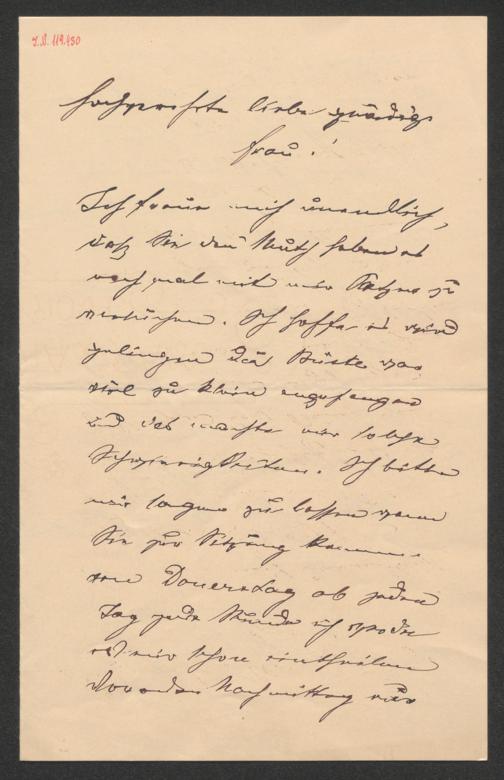 I.N. 119.430
Hochverehrte liebe gnädige
Frau!
Ich freue mich unendlich,
daß Sie den Muth haben es
noch mal mit mir
versuchen. Ich hoffe es wird
gelingen die Büste war
viel zu klein angefangen
und das machte mir solche
Schwierigkeiten. Ich bitte
mir sagen zu lassen wann
Sie zur Sitzung kommen.
von Donerstag ab jeden
Tag jede Stunde ich werde
es mir schon eintheilen
Vor oder Nachmittag nur